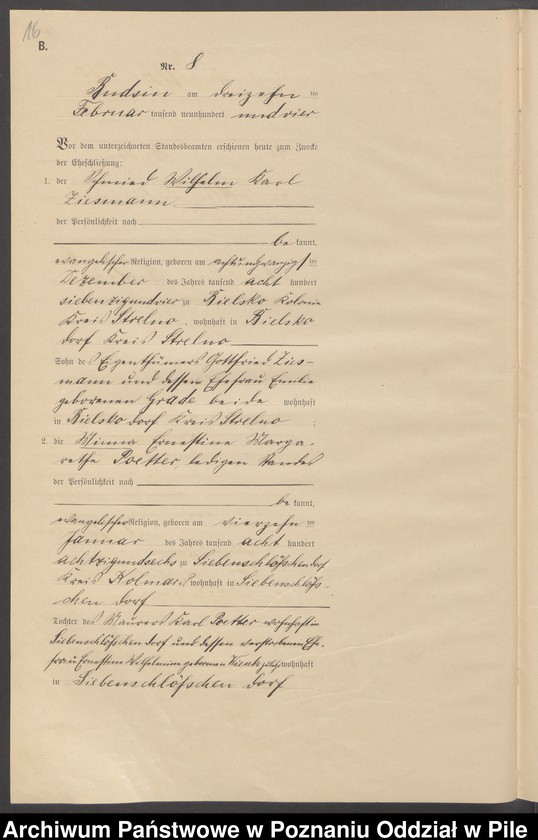 16
B.
Nr. 8
Budsin am dreizehn ten
Februar tausend neunhundert und vier
Vor dem unterzeichneten Standesbeamten erschienen heute zum Zwecke
der Eheschließung:
1. der Schmied Wilhelm Karl
Ziesmann
der Persönlichkeit nach
be kannt,
evangelischer Religion, geboren am achtundzwanzigs ten
Dezember des Jahres tausend acht hundert
siebenzigundvier zu Bielsko Kolonie
Kreis Strelno, wohnhaft in Bielsko
dorf Kreis Strelno
Sohn des Eigenthümers Gottfried Zies-
mann und dessen Ehefrau Emilie
geborenen Grade beide wohnhaft
in Bielsko dorf Kreis Strelno ;
2. die Minna Ernestine Marga-
rethe Poetter, ledigen Standes
der Persönlichkeit nach
be kannt,
evangelischer Religion, geboren am vierzehn ten
Januar des Jahres tausend acht hundert
achtzigundsechs zu Siebenschlößchen dorf
Kreis Kolmar, wohnhaft in Siebenschlöß-
chen dorf
Tochter des Maurers Karl Poetter wohnhaft in
Siebenschlößchen dorf und dessen verstorbenen Ehe-
frau Ernestine Wilhelmine geborenen zuletzt wohnhaft
in Siebenschlößchen dorf
Archiwum Państwowe w Poznaniu Oddział w Pile